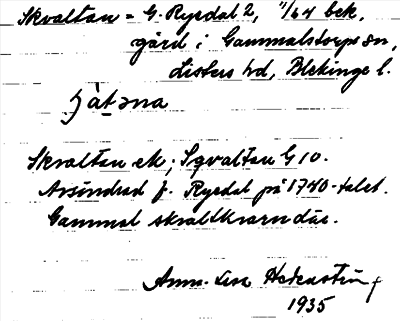 Skvaltan = G. Ryedal 2, 1/64 bek,
gård i Gammalstorps sn,
Listers hd, Blekinge l.
Skvaltan ek; Sqvaltan G 10.
Avsöndrad fr. Ryedal på 1740-talet.
Gammal skvaltkvarn där.
Ann-Lisa Hedenstierna
1935